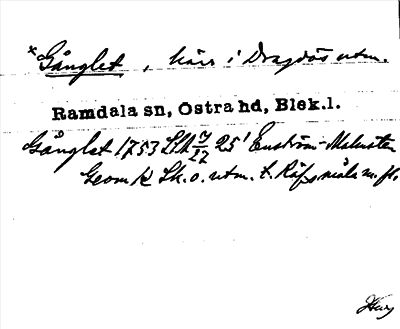 *Gånglet, kärr i Dragsös utm.
Ramdala sn, Östra hd, Blek.l.
Gånglet 1753 LSA 7/27 25¹ Enström-Malmsten
Geom k Sk. o. utm. t. Räfsmåla m. fl.